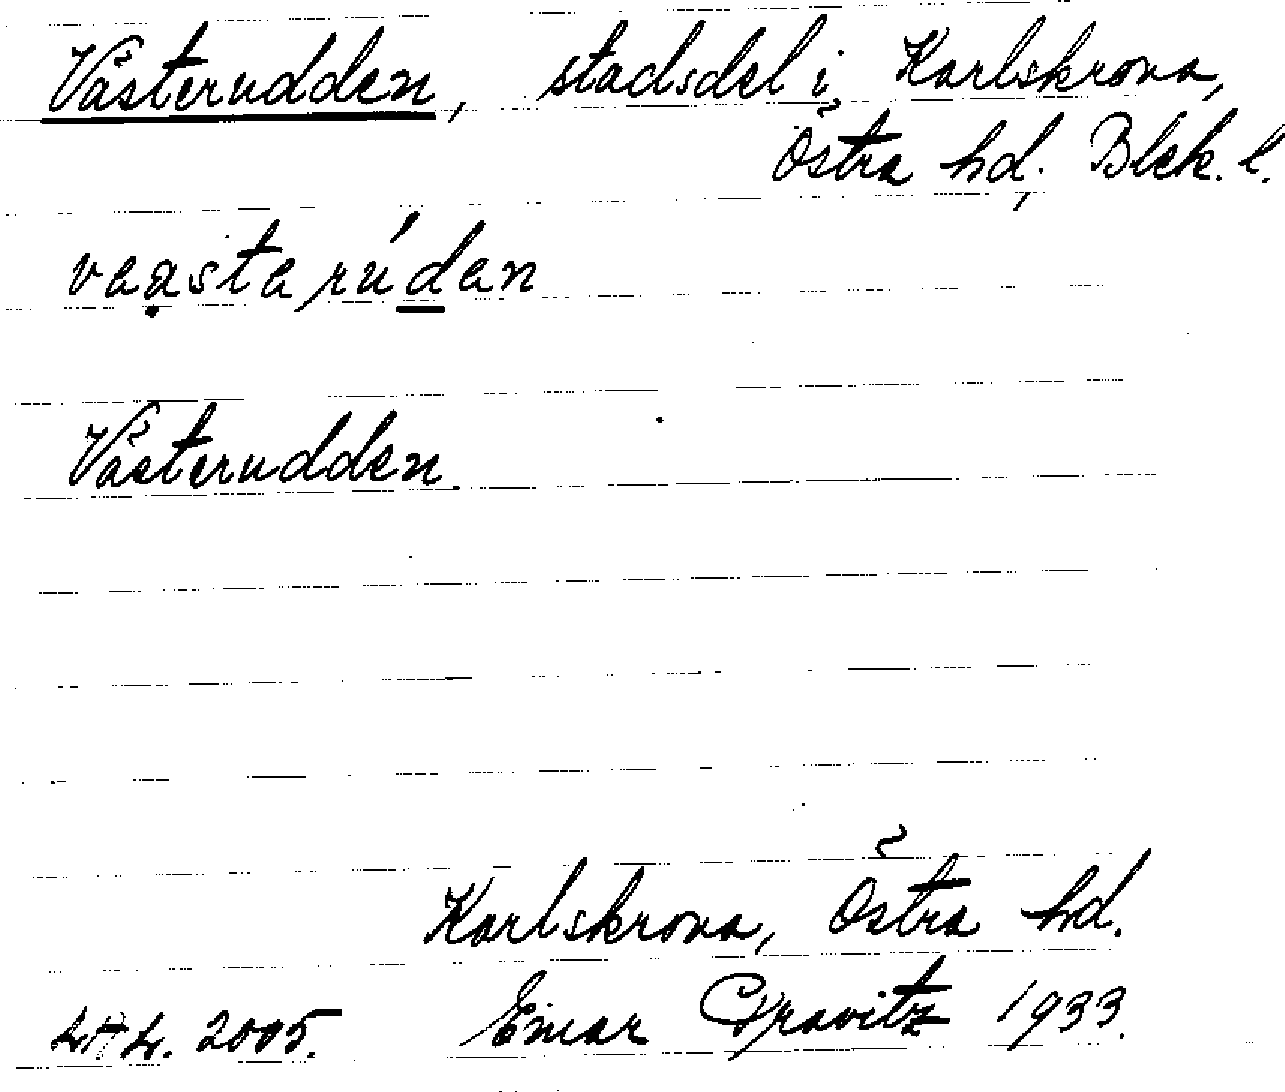 Västerudden, stadsdel i Karlskrona,
Östra hd. Blek. l.
Västerudden.
Karlskrona, Östra hd.
2005. Einar Gravitz 1933.